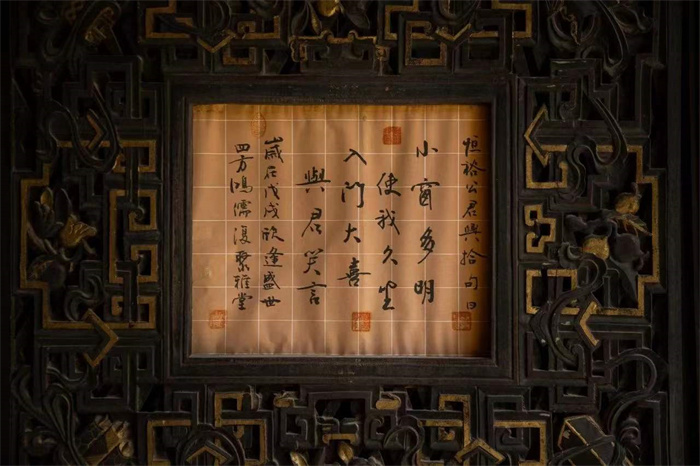 恒裕公君與拾句曰
小窗多明
使我久坐
入門大喜
與君笑言
歲在戊戌欣逢盛世
四方鴻儒復聚雅堂